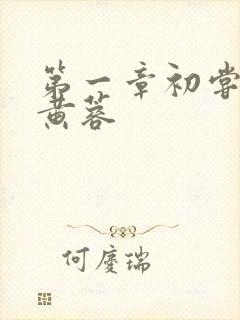 第一章初尝
黄蓉
何庆瑞